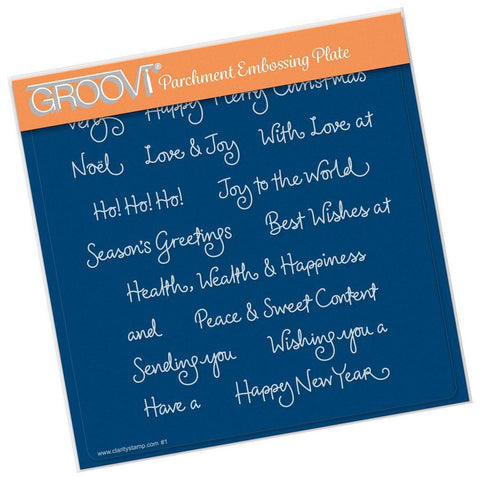 GROOVI® Parchment Embossing Plate
very Happy Merry Christmas
Noël Love & Joy With Love at
Ho! Ho! Ho! Joy to the World
Season's Greetings Best Wishes at
Health, Wealth & Happiness
and Peace & Sweet Content
Sending you Wishing you a
Have a Happy New Year
www.claritystamp.com #1